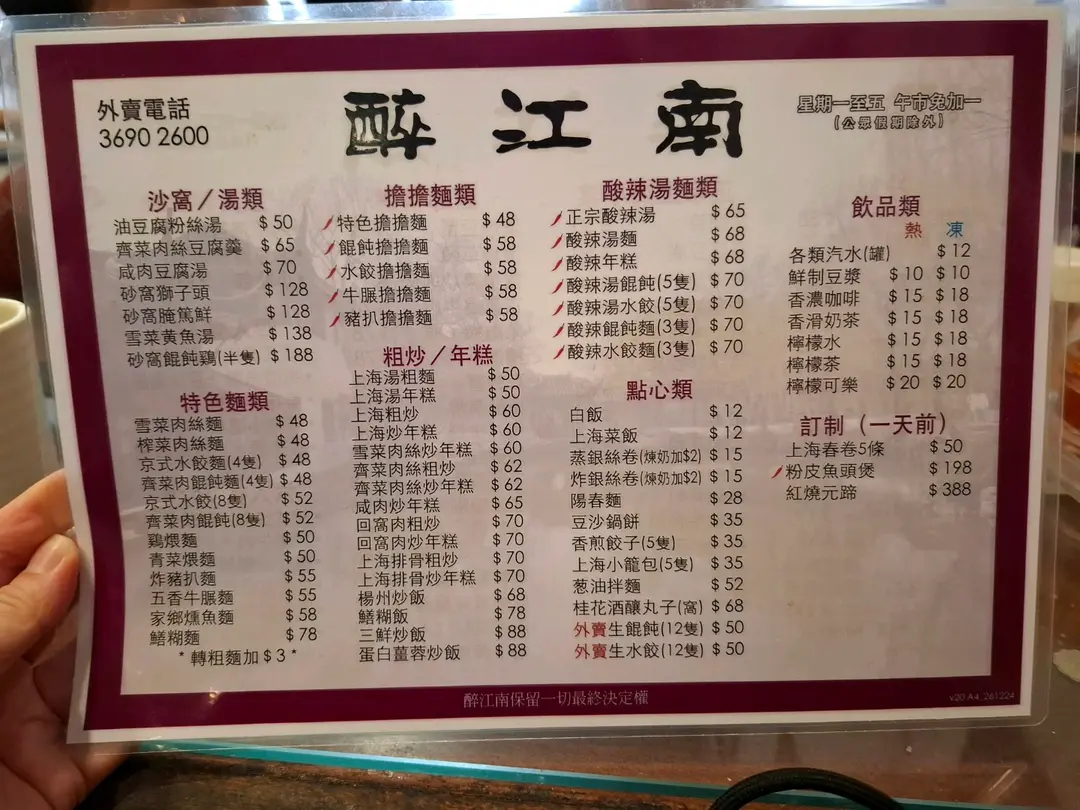 外賣電話
3690 2600
醉江南
星期一至五 午市免加一
(公眾假期除外)
沙窩／湯類
油豆腐粉絲湯 $50
齊菜肉絲豆腐羹 $65
咸肉豆腐湯 $70
砂窩獅子頭 $128
砂窩腌篤鮮 $128
雪菜黄魚湯 $138
砂窩餛飩鷄(半隻) $188
特色麵類
雪菜肉絲麵 $48
榨菜肉絲麵 $48
京式水餃麵(4隻) $48
齊菜肉餛飩麵(4隻) $48
京式水餃(8隻) $52
齊菜肉餛飩(8隻) $52
鷄煨麵 $50
青菜煨麵 $50
炸豬扒麵 $55
五香牛𦟌麵 $55
家鄉燻魚麵 $58
鱔糊麵 $78
*轉粗麵加$3*
擔擔麵類
特色擔擔麵 $48
餛飩擔擔麵 $58
水餃擔擔麵 $58
牛𦟌擔擔麵 $58
豬扒擔擔麵 $58
粗炒／年糕
上海湯粗麵 $50
上海湯年糕 $50
上海粗炒 $60
上海炒年糕 $60
雪菜肉絲炒年糕 $60
齊菜肉絲粗炒 $62
齊菜肉絲炒年糕 $62
咸肉炒年糕 $65
回窩肉粗炒 $70
回窩肉炒年糕 $70
上海排骨粗炒 $70
上海排骨炒年糕 $70
楊州炒飯 $68
鱔糊飯 $78
三鮮炒飯 $88
蛋白薑蓉炒飯 $88
酸辣湯麵類
正宗酸辣湯 $65
酸辣湯麵 $68
酸辣年糕 $68
酸辣湯餛飩(5隻) $70
酸辣湯水餃(5隻) $70
酸辣餛飩麵(3隻) $70
酸辣水餃麵(3隻) $70
點心類
白飯 $12
上海菜飯 $12
蒸銀絲卷(煉奶加$2) $15
炸銀絲卷(煉奶加$2) $15
陽春麵 $28
豆沙鍋餅 $35
香煎餃子(5隻) $35
上海小籠包(5隻) $35
葱油拌麵 $52
桂花酒釀丸子(窩) $68
外賣生餛飩(12隻) $50
外賣生水餃(12隻) $50
飲品類
熱 凍
各類汽水(罐) $12
鮮制豆漿 $10 $10
香濃咖啡 $15 $18
香滑奶茶 $15 $18
檸檬水 $15 $18
檸檬茶 $15 $18
檸檬可樂 $20 $20
訂制（一天前）
上海春卷5條 $50
粉皮魚頭煲 $198
紅燒元蹄 $388
醉江南保留一切最終決定權
v20 A4_261224